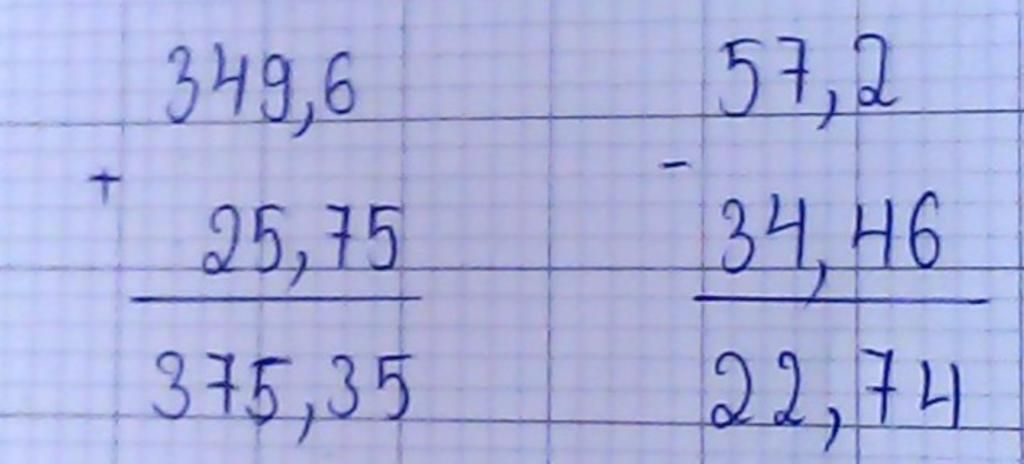 349,6
+
25,75
375,35
57,2
-
34,46
22,74